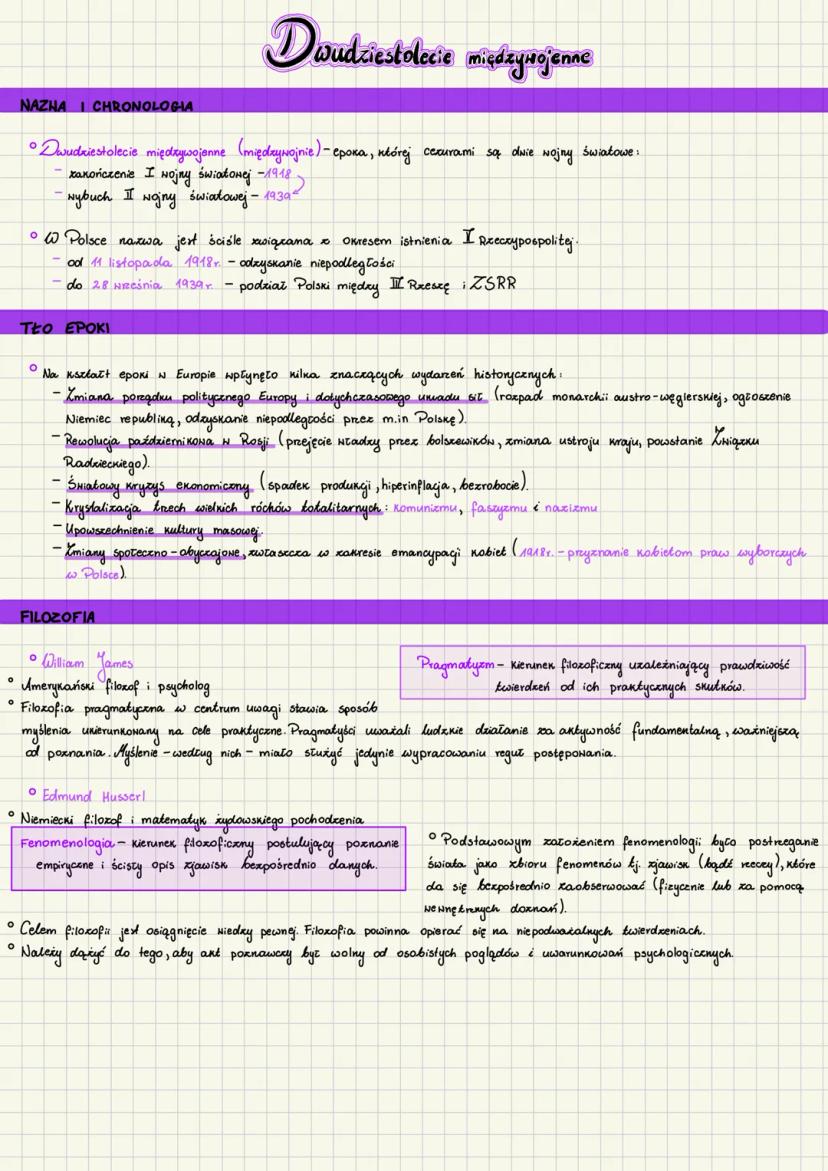 Dwudziestolecie międzywojenne
NAZWA I CHRONOLOGIA
Dwudziestolecie międzywojenne (międzywojnie) – epoka, której cezurami są dwie wojny światowe:
– zakończenie I wojny światowej – 1918
– wybuch II wojny światowej – 1939
W Polsce nazwa jest ściśle związana z okresem istnienia II Rzeczypospolitej.
– od 11 listopada 1918r. – odzyskanie niepodległości
– do 28 września 1939r. – podział Polski między III Rzeszę i ZSRR
TŁO EPOKI
Na kształt epoki w Europie wpłynęło kilka znaczących wydarzeń historycznych:
– Zmiana porządku politycznego Europy i dotychczasowego układu sił (rozpad monarchii austro-węgierskiej, ogłoszenie
Niemiec republiką, odzyskanie niepodległości przez m.in Polskę).
– Rewolucja październikowa w Rosji (przejęcie władzy przez bolszewików, zmiana ustroju kraju, powstanie Związku
Radzieckiego).
– Światowy kryzys ekonomiczny (spadek produkcji, hiperinflacja, bezrobocie).
– Krystalizacja trzech wielkich róchów totalitarnych: komunizmu, faszyzmu i nazizmu
– Upowszechnienie kultury masowej.
– Zmiany społeczno-obyczajowe, zwłaszcza w zakresie emancypacji kobiet (1918r. – przyznanie kobietom praw wyborczych
w Polsce).
FILOZOFIA
William James
Amerykański filozof i psycholog
Pragmatyzm – kierunek filozoficzny uzależniający prawdziwość
twierdzeń od ich praktycznych skutków.
Filozofia pragmatyczna w centrum uwagi stawia sposób
myślenia ukierunkowany na cele praktyczne. Pragmatyści uważali ludzkie działanie za aktywność fundamentalną, ważniejszą
od poznania. Myślenie – według nich – miało służyć jedynie wypracowaniu reguł postępowania.
Edmund Husserl
Niemiecki filozof i matematyk żydowskiego pochodzenia
Fenomenologia – kierunek filozoficzny postulujący poznanie
empiryczne i ścisły opis zjawisk bezpośrednio danych.
Podstawowym założeniem fenomenologii było postrzeganie
świata jako zbioru fenomenów tj. zjawisk (bądź rzeczy), które
da się bezpośrednio zaobserwować (fizycznie lub za pomocą
wewnętrznych doznań).
Celem filozofii jest osiągnięcie wiedzy pewnej. Filozofia powinna opierać się na niepodważalnych twierdzeniach.
Należy dążyć do tego, aby akt poznawczy był wolny od osobistych poglądów i uwarunkowań psychologicznych.